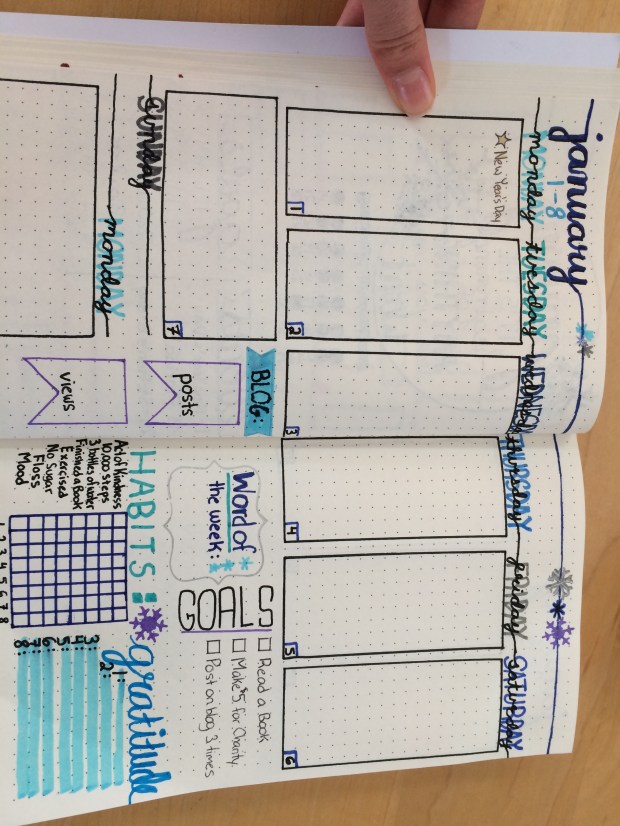 january
1-8
MONDAY monday
TUESDAY tuesday
WEDNESDAY wednesday
THURSDAY thursday
FRIDAY friday
SATURDAY saturday
☆ New Year's Day
1
2
3
4
5
6
SUNDAY sunday
7
MONDAY monday
BLOG:
posts
views
Word of
the week:
GOALS
Read a Book
Make $5 for Charity.
Post on blog 3 times
HABITS:
Act of Kindness
10,000 steps
3 bottles of water
Finished a Book
Exercised
No Sugar
Floss
Mood
1 2 3 4 5 6 7 8
gratitude
1:
2:
3:
4:
5:
6:
7:
8: